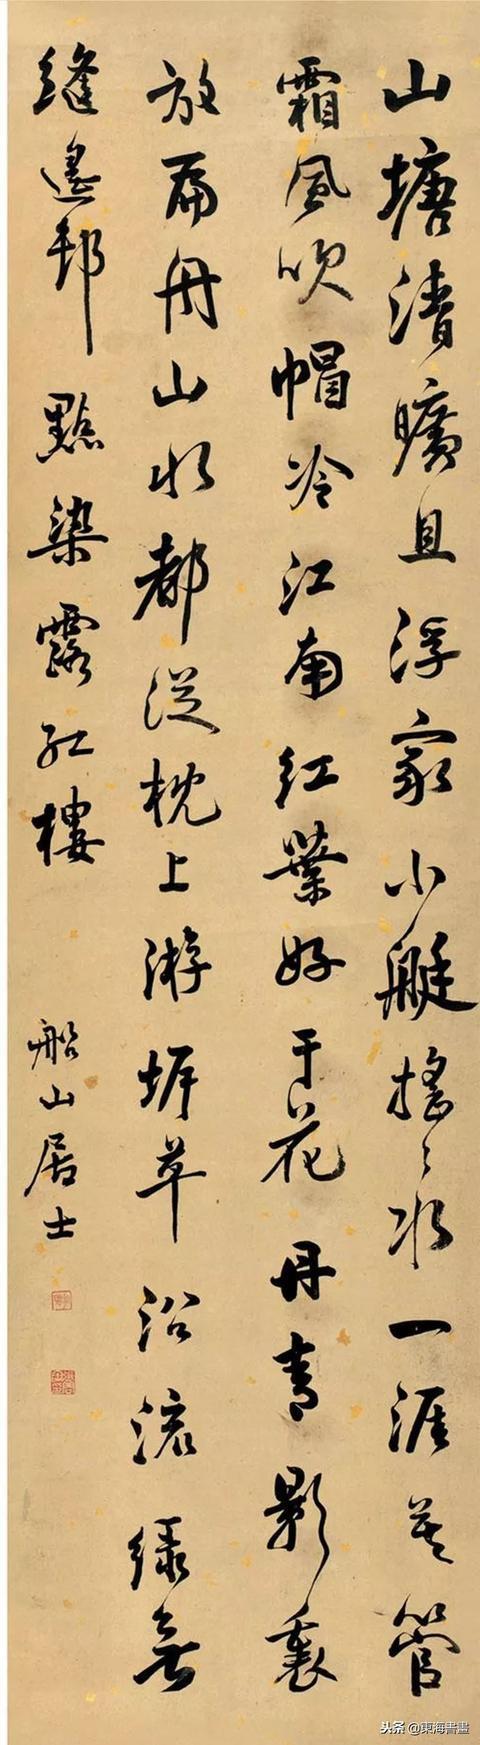 山塘清曠且浮家小艇搖々水一涯莫管
霜風吹帽冷江南紅葉好于花丹青影裏
放扁舟山水都從枕上游草沿流綠無
縫遙邨點染露紅樓
船山居士
头条@東海書畫